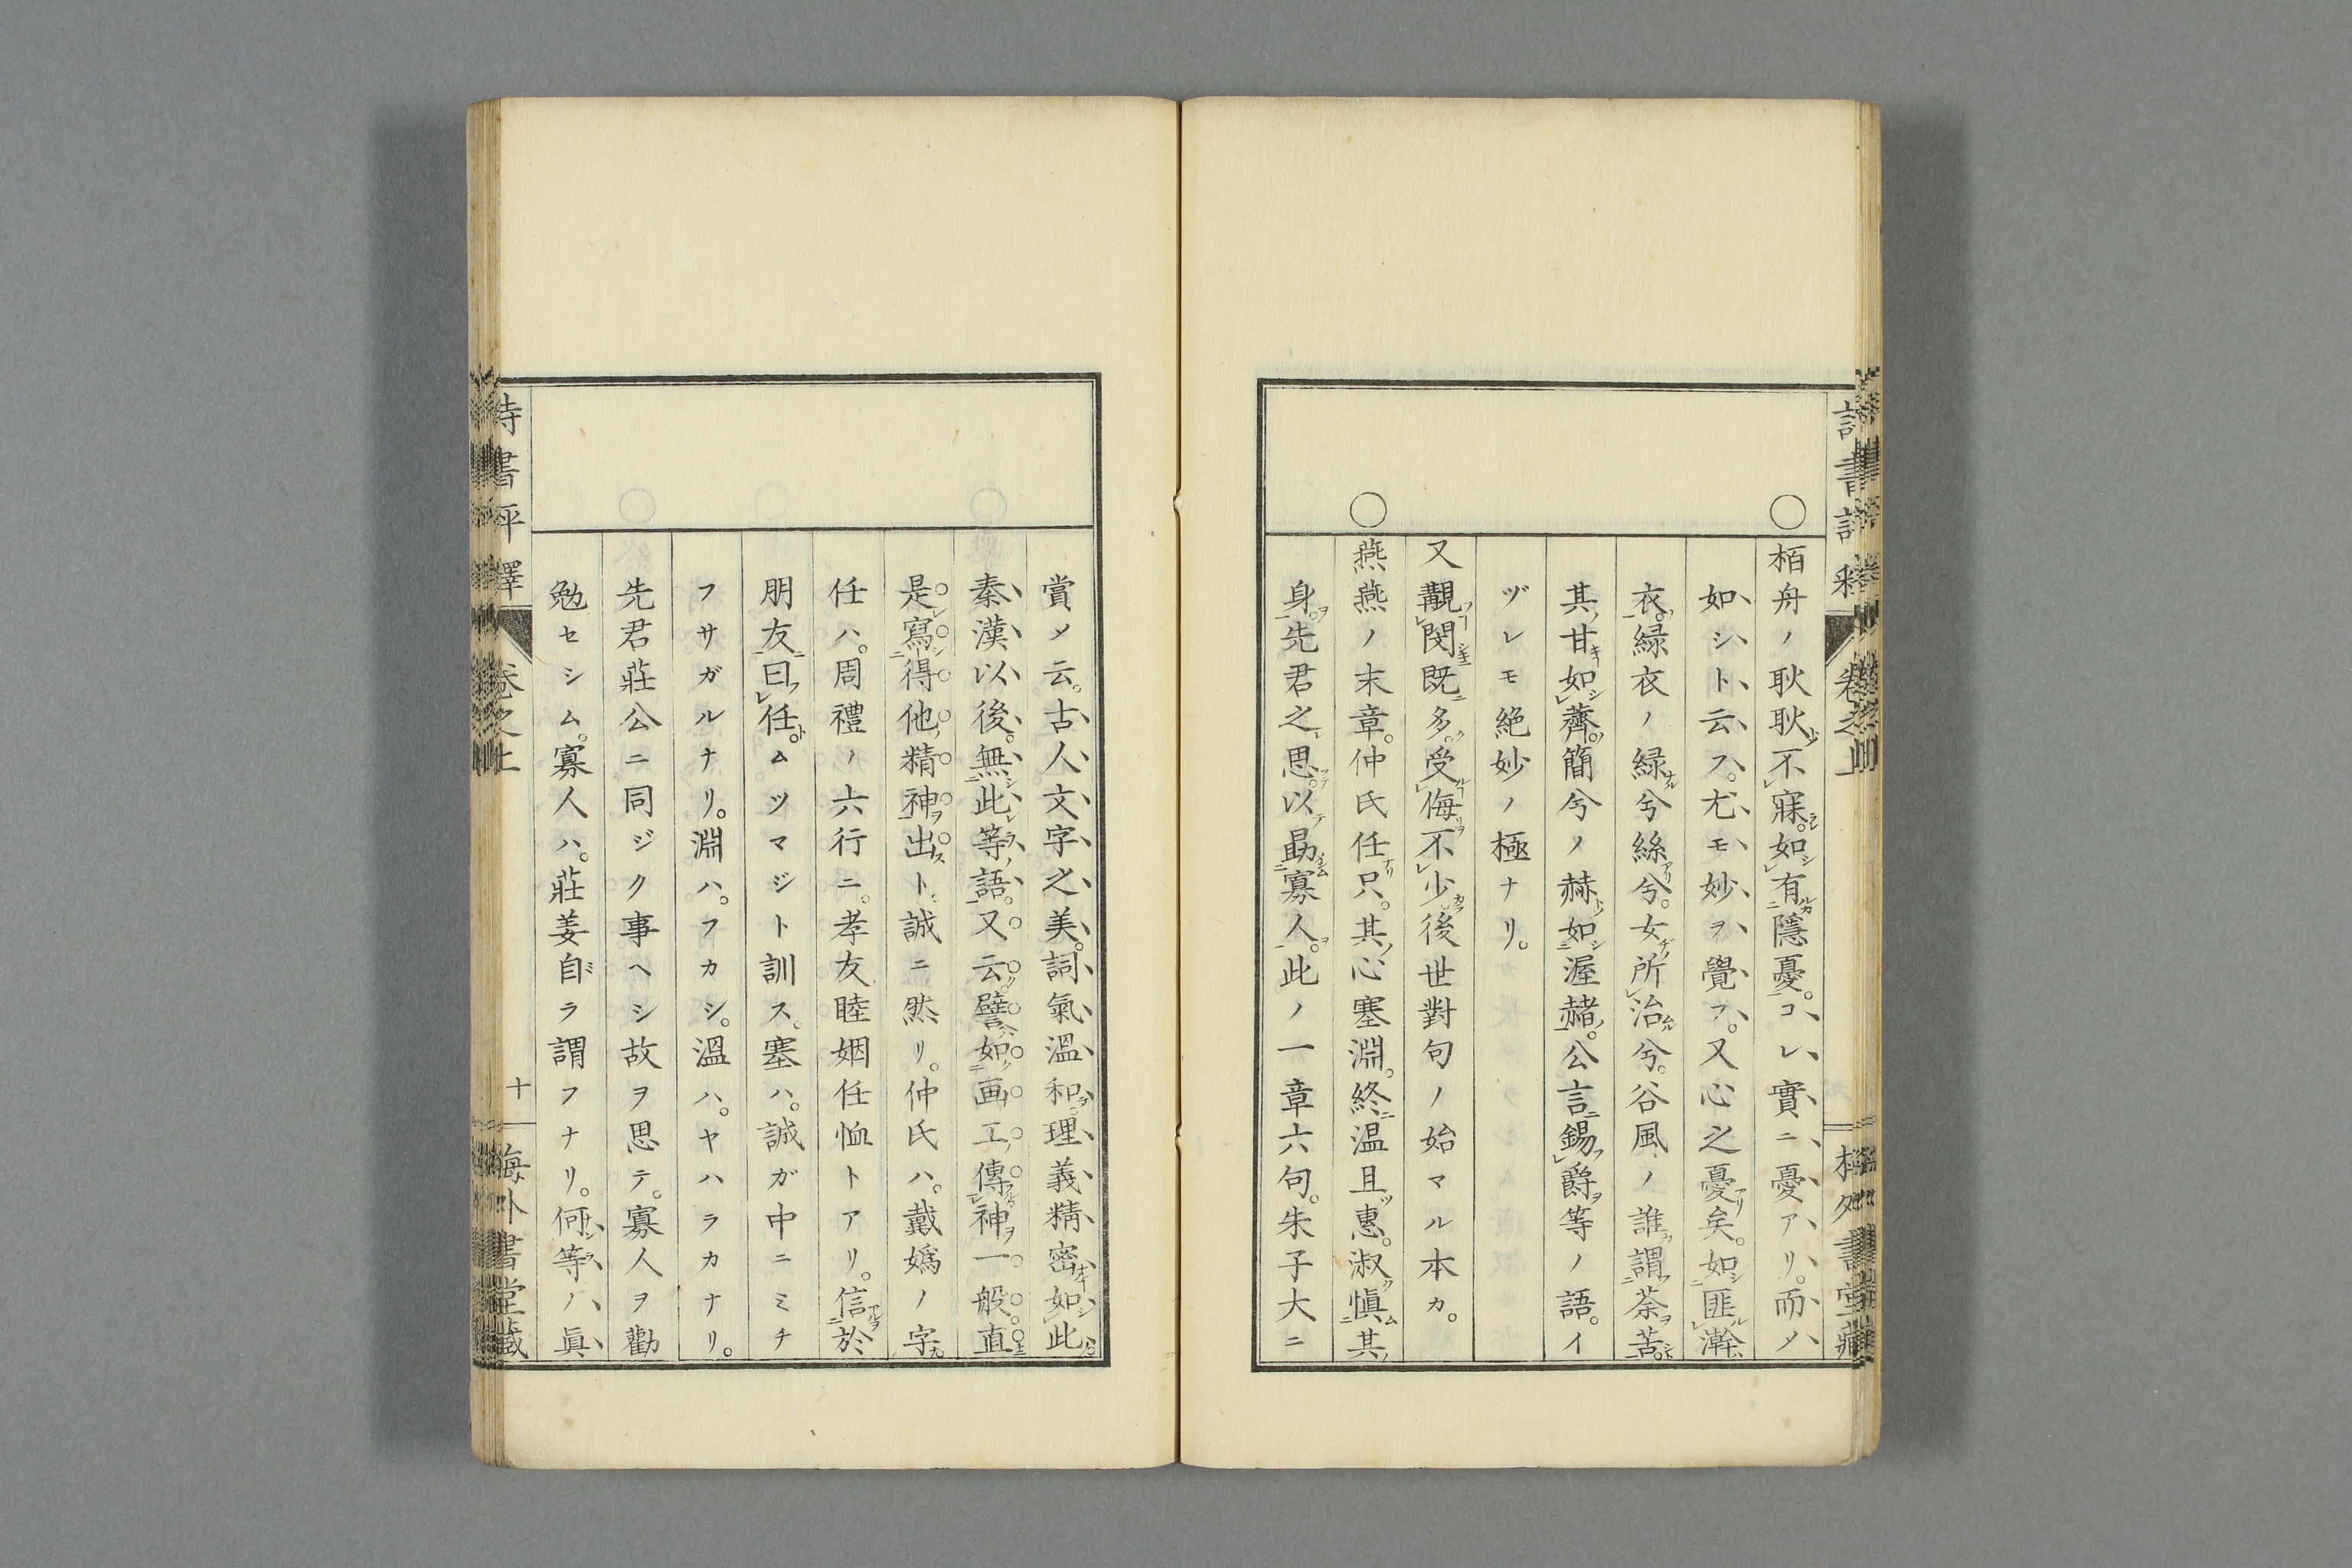 ○
栢舟ノ耿耿不寐。如有隱憂。コレ實ニ憂アリ。而ノ
如シト云フ。尤モ妙ヲ覺フ。又心之憂矣。如匪澣
衣。緑衣ノ緑兮絲兮。女所治兮。谷風ノ誰謂荼苦。
其甘如薺。簡兮ノ赫如渥赭。公言錫爵等ノ語。イ
ヅレモ絶妙ノ極ナリ。
又覯閔既多。受侮不少。後世對句ノ始マル本カ。
○
燕燕ノ末章。仲氏任只。其心塞淵。終温且惠。淑愼其
身。先君之思。以勗寡人。此ノ一章六句。朱子大ニ
賞メ云。古人文字之美。詞氣溫和。理義精密如此。
秦漢以後。無此等語。又云。譬如画工傳神一般。直
是寫得他精神出ト。誠ニ然リ。仲氏ハ。戴嬀ノ字
任ハ。周禮ノ六行ニ。孝友睦姻任恤トアリ。信於
朋友曰任。ムツマジト訓ス。塞ハ。誠ガ中ニミチ
フサガルナリ。淵ハ。フカシ。溫ハ。ヤハラカナリ。
先君莊公ニ同ジク事ヘシ故ヲ思テ。寡人ヲ勸
勉セシム。寡人ハ。莊姜自ラ謂フナリ。何等ノ眞
詩書評釋
卷之上
十
梅外書堂藏